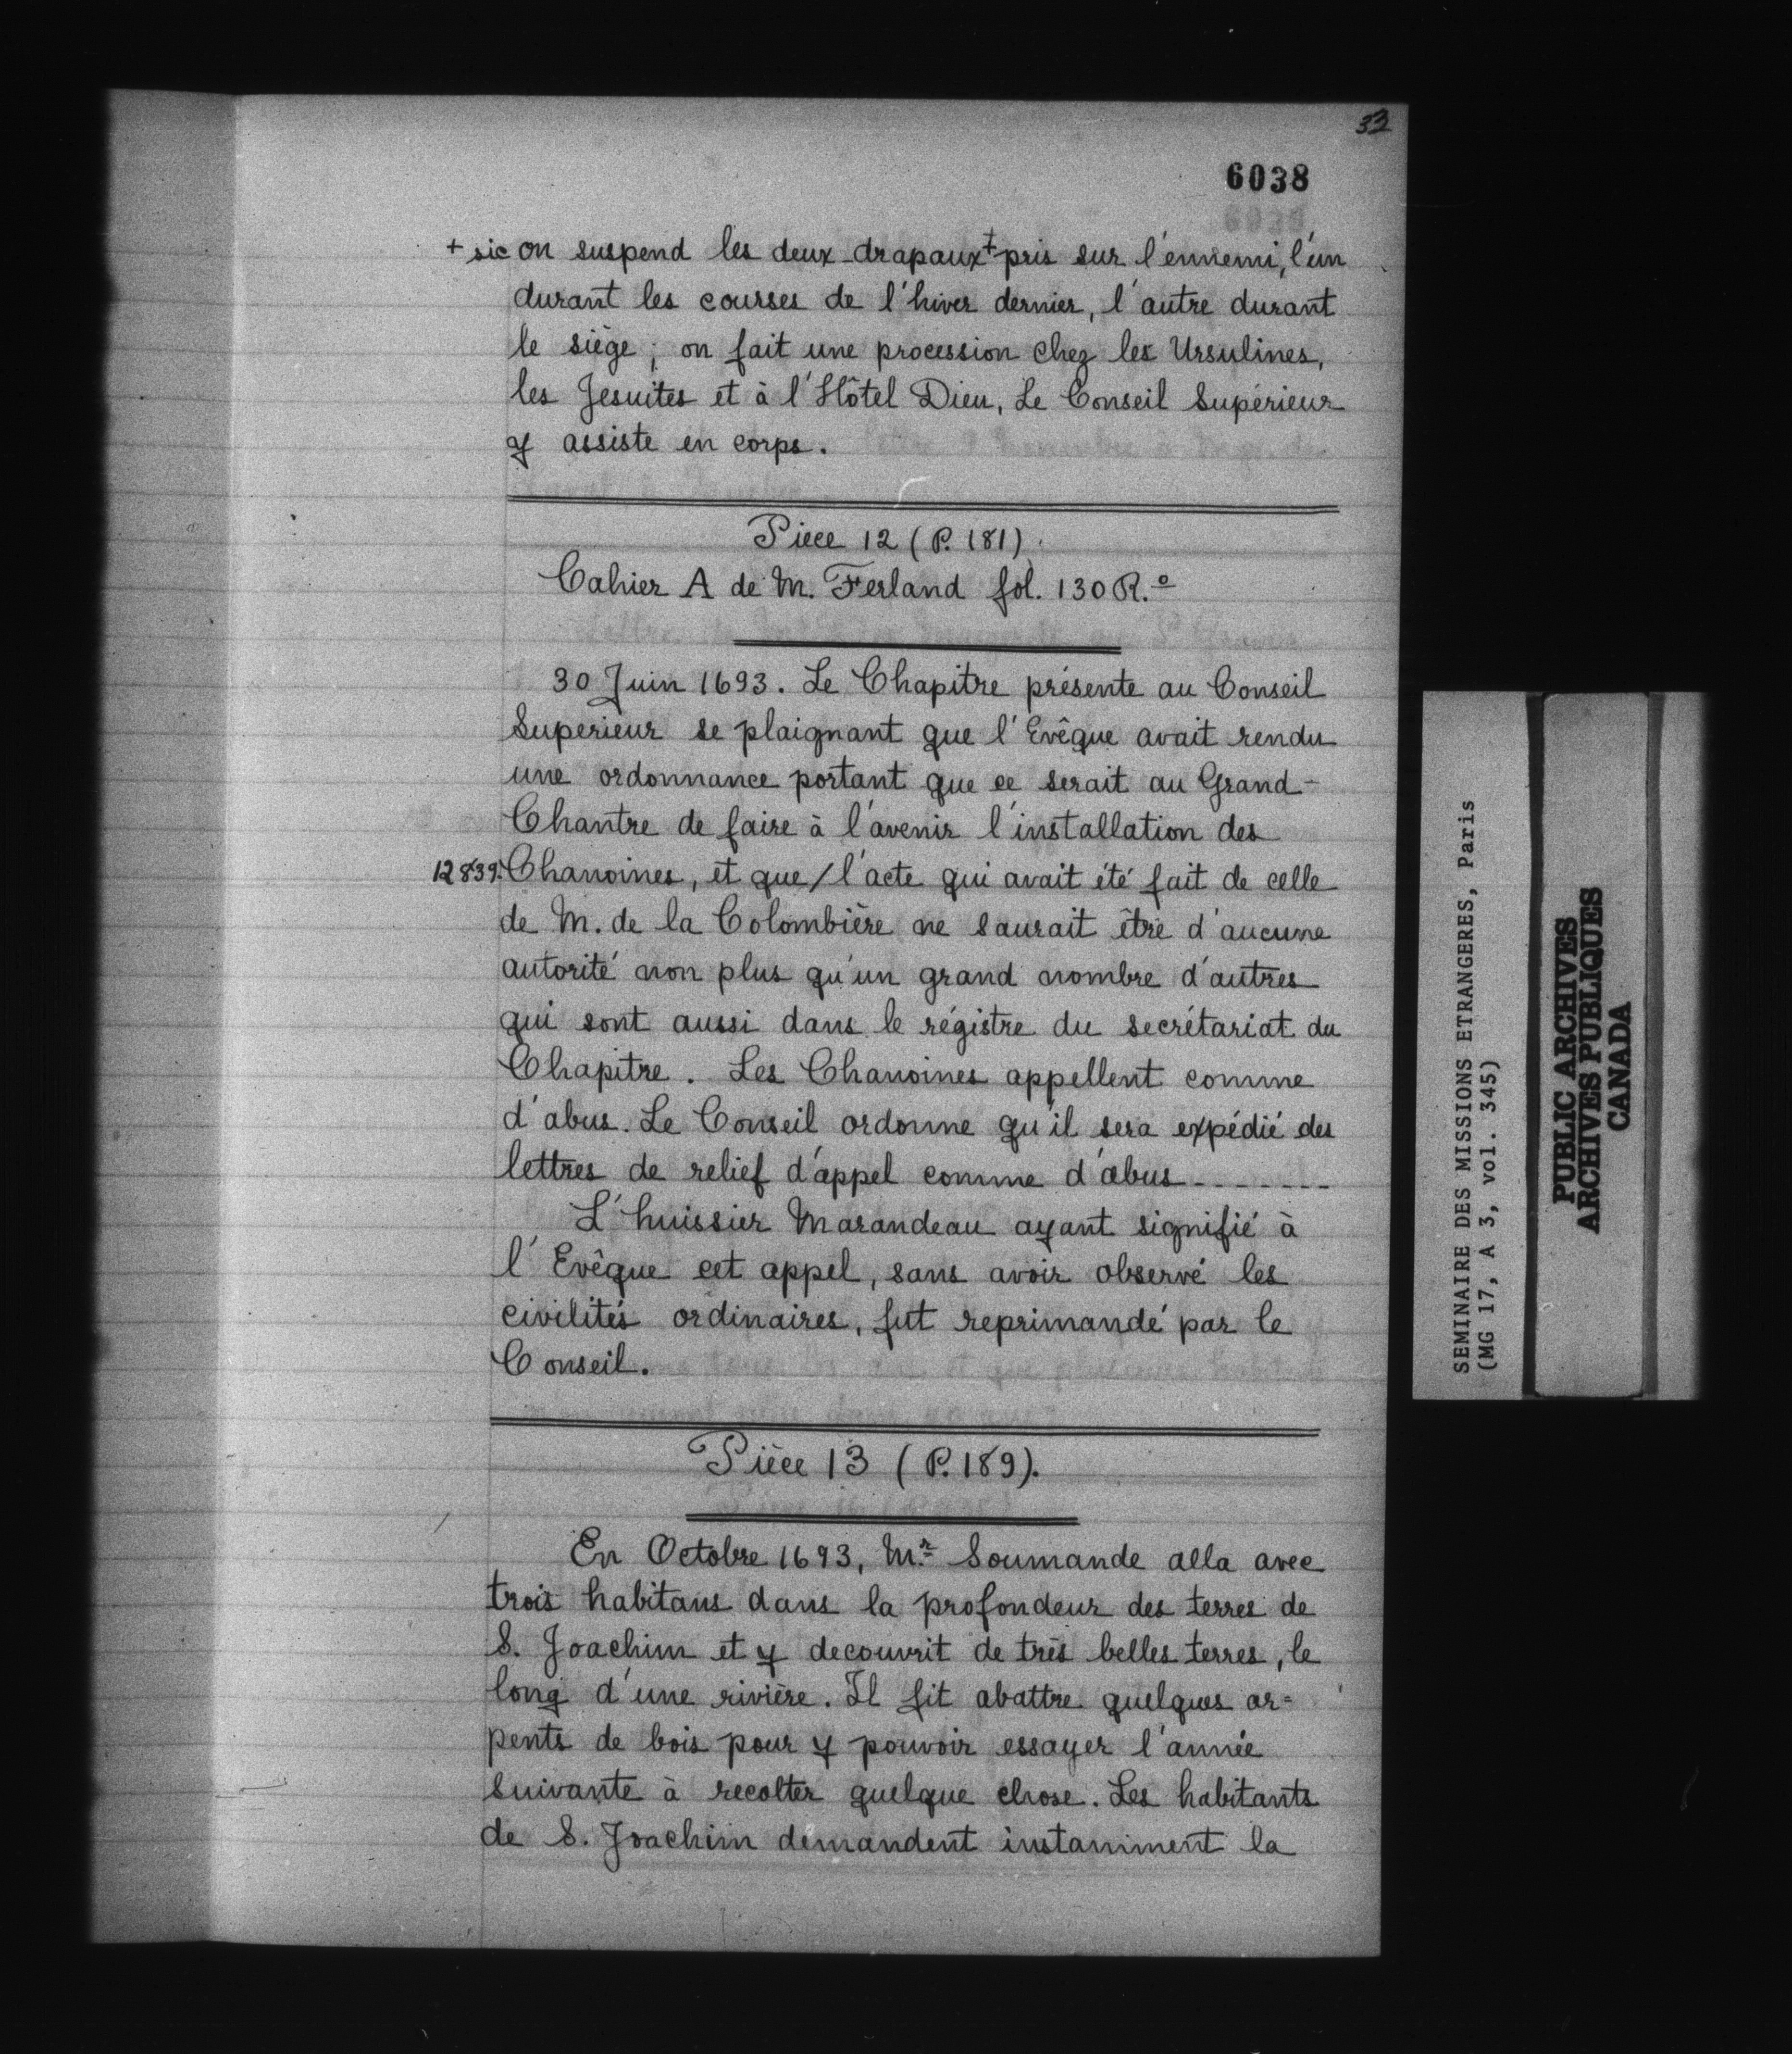 33
6038
+ sic on suspend les deux drapaux + pris sur l'ennemi, l'un
durant les courses de l'hiver dernier, l'autre durant
le siège; on fait une procession chez les Ursulines,
les Jesuites et à l'Hôtel Dieu, Le Conseil Supérieur
y assiste en corps.
Piece 12 (P. 181).
Cahier A de M. Ferland fol. 130 R.º
30 Juin 1693. Le Chapitre présente au Conseil
Superieur se plaignant que l'Evêque avait rendu
une ordonnance portant que ce serait au Grand-
Chantre de faire à l'avenir l'installation des
12839. Chanoines, et que / l'acte qui avait été fait de celle
de M. de la Colombière ne saurait être d'aucune
autorité non plus qu'un grand nombre d'autres
qui sont aussi dans le régistre du secrétariat du
Chapitre. Les Chanoines appellent comme
d'abus. Le Conseil ordonne qu'il sera expédié des
lettres de relief d'appel comme d'abus - - - - - - -
L'huissier Marandeau ayant signifié à
l'Evêque cet appel, sans avoir observé les
civilités ordinaires, fut reprimandé par le
Conseil.
Pièce 13 (P. 189).
En Octobre 1693, Mr. Soumande alla avec
trois habitans dans la profondeur des terres de
S. Joachim et y decouvrit de très belles terres, le
long d'une rivière. Il fit abattre quelques ar=
pents de bois pour y pouvoir essayer l'année
suivante à recolter quelque chose. Les habitants
de S. Joachim demandent instamment la
SEMINAIRE DES MISSIONS ETRANGERES, Paris
(MG 17, A 3, vol. 345)
PUBLIC ARCHIVES
ARCHIVES PUBLIQUES
CANADA